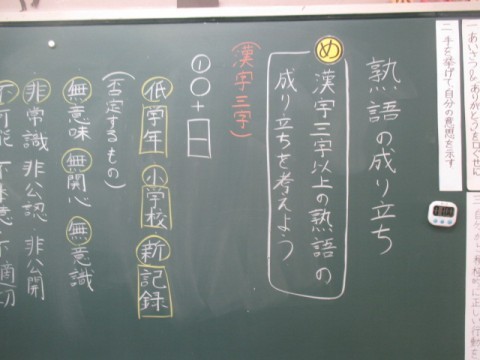 一 あいさつ&ありがとうを口ぐせに
二 手を挙げて自分の意思を示す
熟語の成り立ち
め 漢字三字以上の熟語の
成り立ちを考えよう
(漢字三字)
①○+□□
低学年 小学校 新記録
(否定するもの)
無意味 無関心 無意識
非常識 非公認 非公開
不可能 不注意 不適切